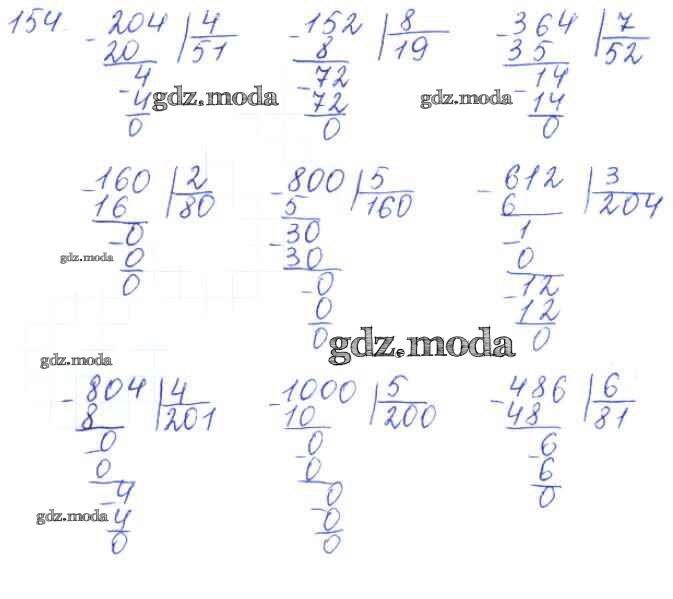 154. -204 | 4 -152 | 8 -364 | 7
20 | 51 8 | 19 35 | 52
-4 -72 -14
4 72 14
gdz.moda gdz.moda
0 0 0
-160 | 2 -800 | 5 -612 | 3
16 | 80 5 | 160 6 | 204
-0 -30 -1
0 30 0
gdz.moda
0 -0 -12
0 12
0 0
gdz.moda
gdz.moda
-804 | 4 -1000 | 5 -486 | 6
8 | 201 10 | 200 48 | 81
-0 -0 -6
0 0 6
-4 -0 0
gdz.moda
4 0
0 0